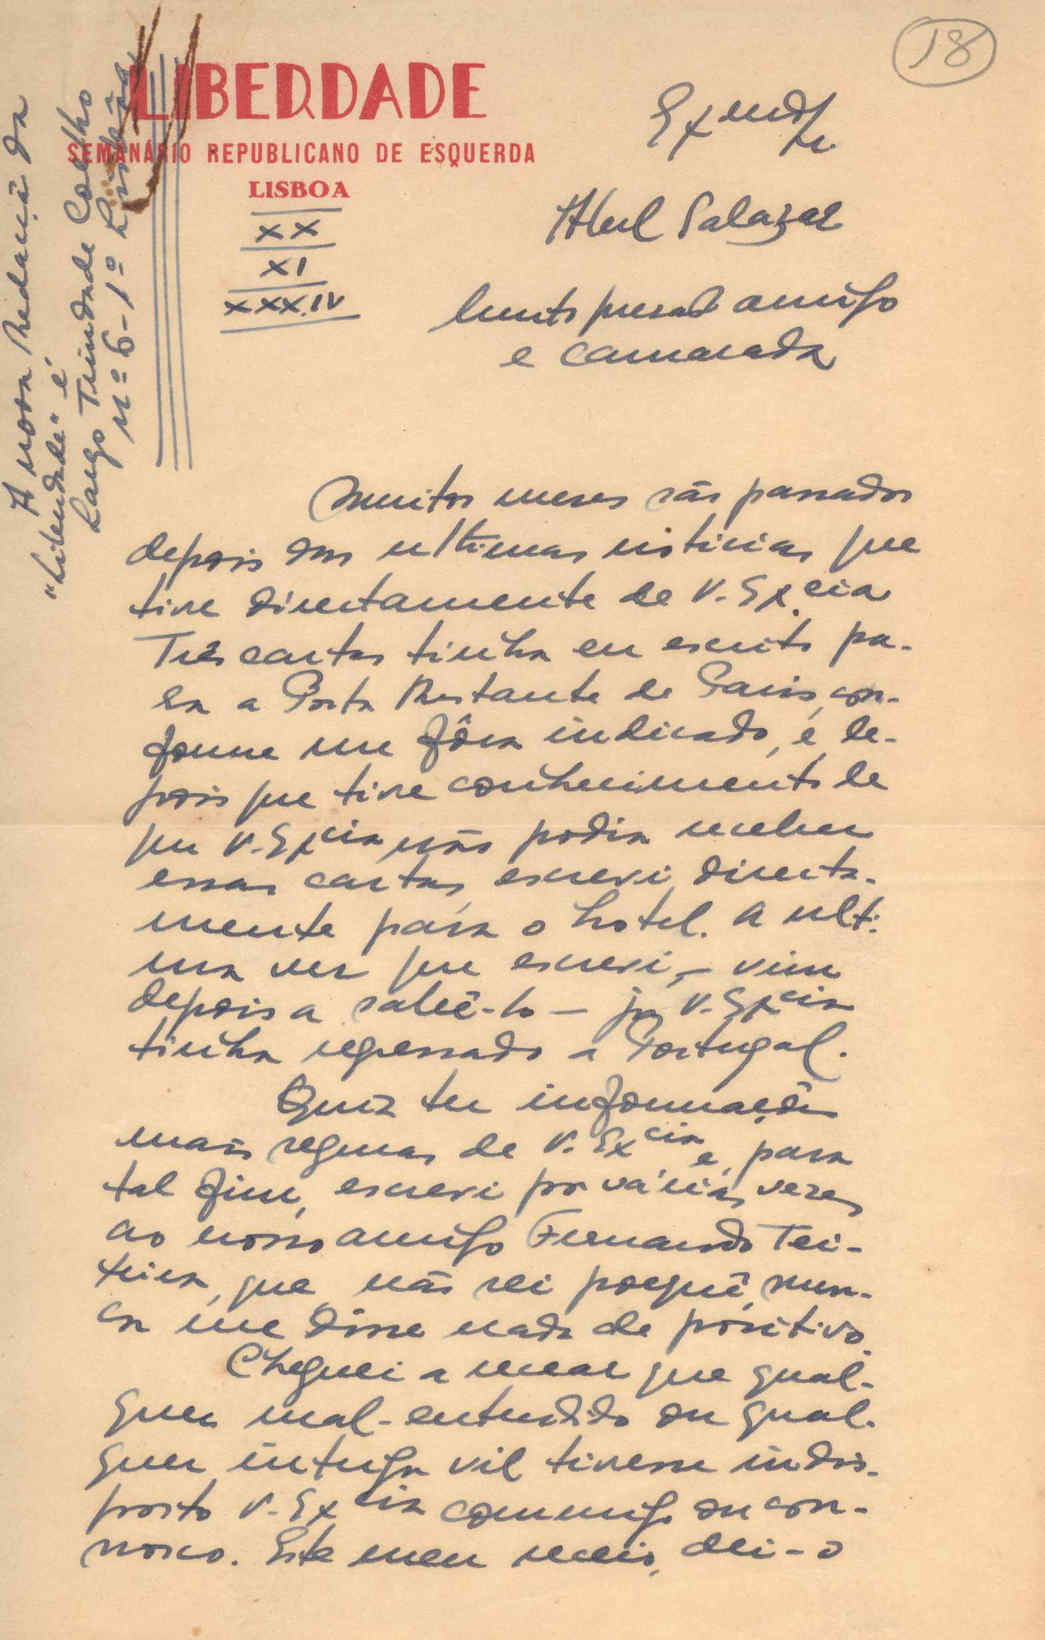 18
LIBERDADE
SEMANÁRIO REPUBLICANO DE ESQUERDA
LISBOA
XX
XI
XXXIV
A nova Redação da
"Liberdade" é:
Largo Trindade Coelho
nº 6-1º Lisboa
Exmo Sr.
Abel Salazar
Muito presado amigo
e camarada
Muitos meses são passados
depois das ultimas noticias que
tive directamente de V. Excia
Três cartas tinha eu escrito pa-
ra a Posta Restante de Paris, con-
forme me fôra indicado, e de-
pois que tive conhecimento de
que V. Excia não podia receber
essas cartas, escrevi directa-
mente para o hotel. A ulti-
ma vez que escrevi, – vim
depois a sabê-lo – já V. Excia
tinha regressado a Portugal.
Quiz ter informações
mais seguras de V. Excia e, para
tal fim, escrevi por várias vezes
ao nosso amigo Fernando Tei-
xeira, que, não sei porquê, nun-
ca me disse nada de positivo.
Cheguei a recear que qual-
quer mal-entendido ou qual-
quer intriga vil tivesse indis-
posto V. Excia commigo ou con-
nosco. Este meu receio, dei-o